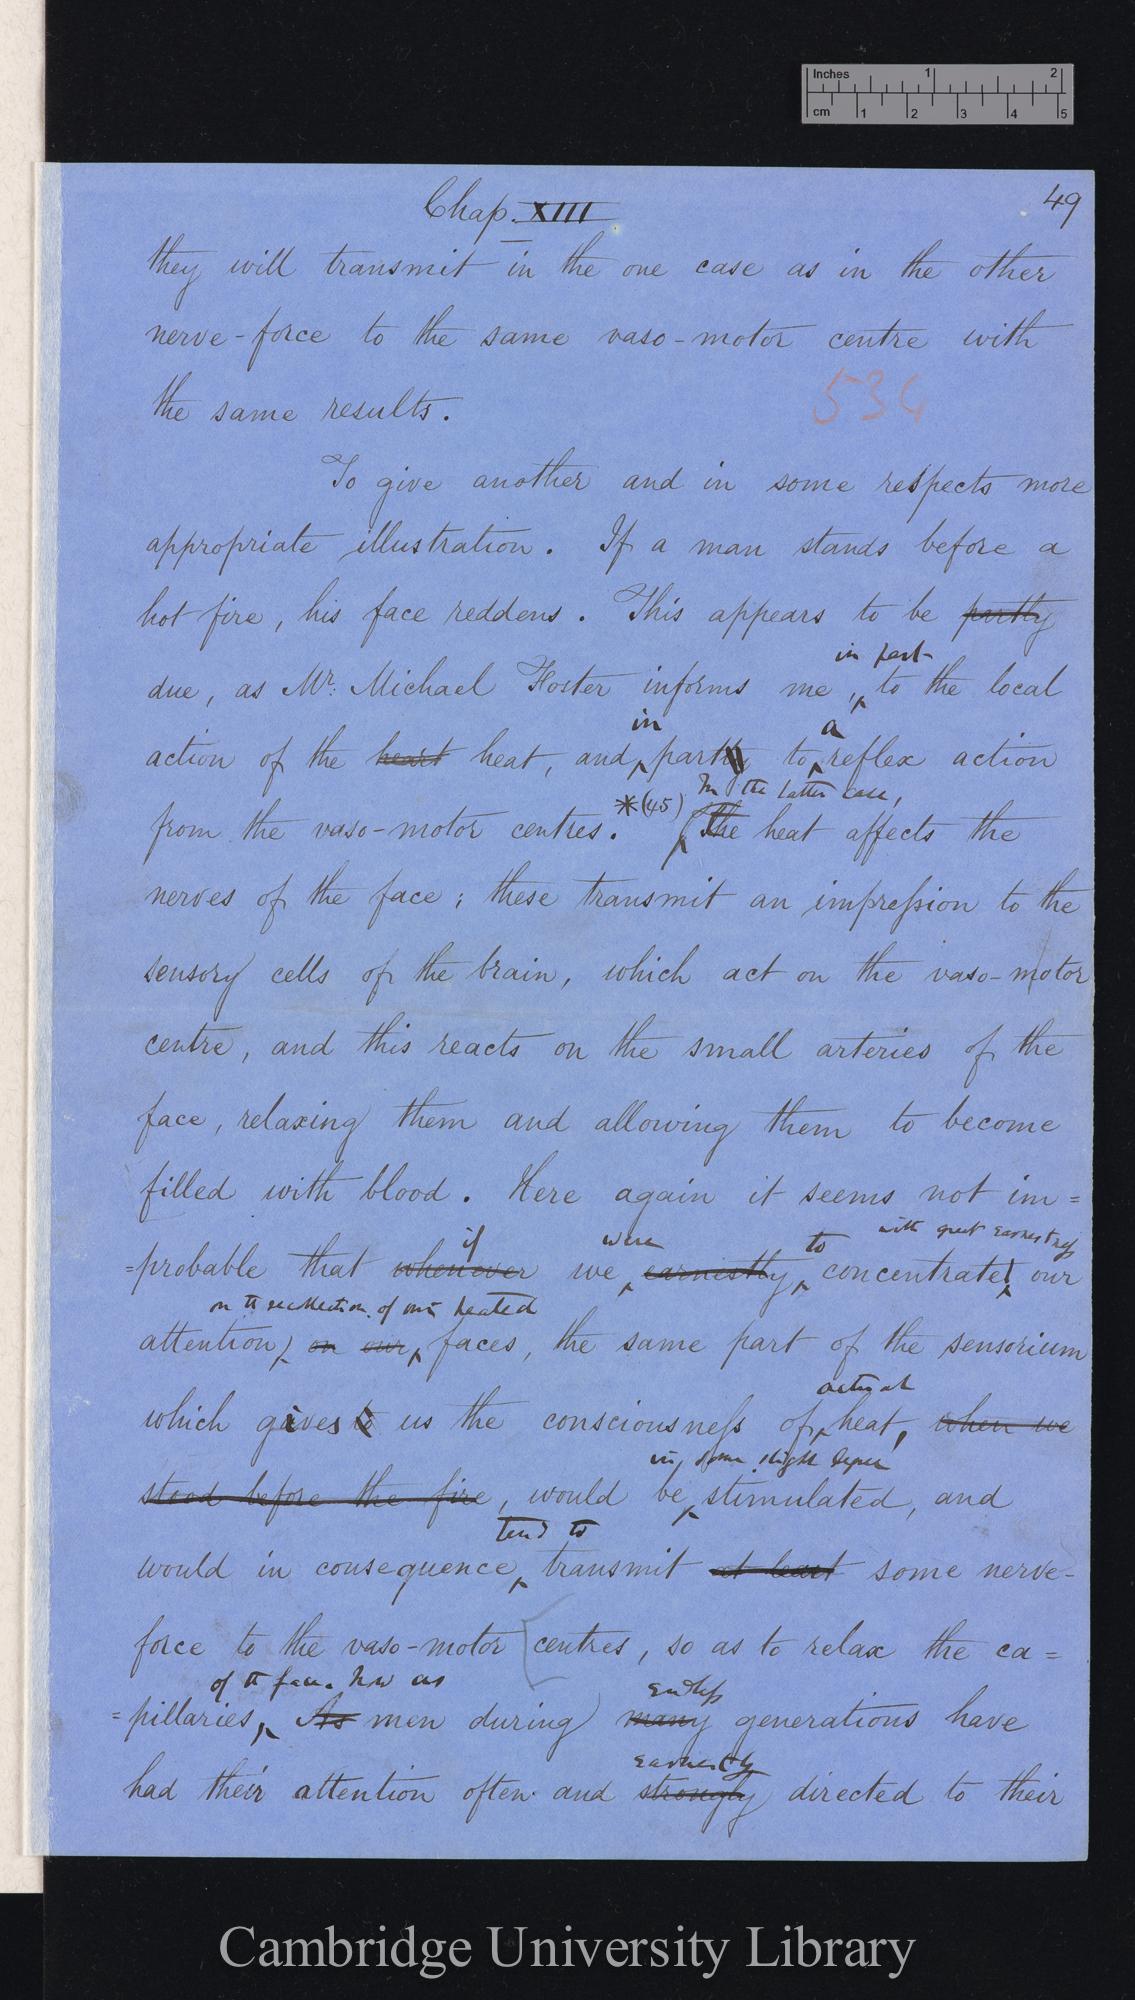 Inches 1 2
cm 1 2 3 4 5
Chap. XIII
49
they will transmit in the one case as in the other
nerve-force to the same vaso-motor centre with
the same results.
534
To give another and in some respects more
appropriate illustration. If a man stands before a
hot fire, his face reddens. This appears to be partly
in part
due, as Mr. Michael Foster informs me, to the local
in a
action of the heart heat, and partly to reflex action
In the latter case,
from the vaso-motor centres.*(45) The heat affects the
nerves of the face; these transmit an impression to the
sensory cells of the brain, which act on the vaso-motor
centre, and this reacts on the small arteries of the
face, relaxing them and allowing them to become
filled with blood. Here again it seems not im=
if were to with great earnestness
=probable that whenever we earnestly concentrated our
on the recollection of our heated
attention, on our faces, the same part of the sensorium
actual
which gives to us the consciousness of heat, when we
in some slight degree
stood before the fire, would be stimulated, and
tend to
would in consequence transmit at least some nerve-
force to the vaso-motor [centres, so as to relax the ca=
of the face. Now as endless
=pillaries, As men during many generations have
earnestly
had their attention often and strongly directed to their
Cambridge University Library